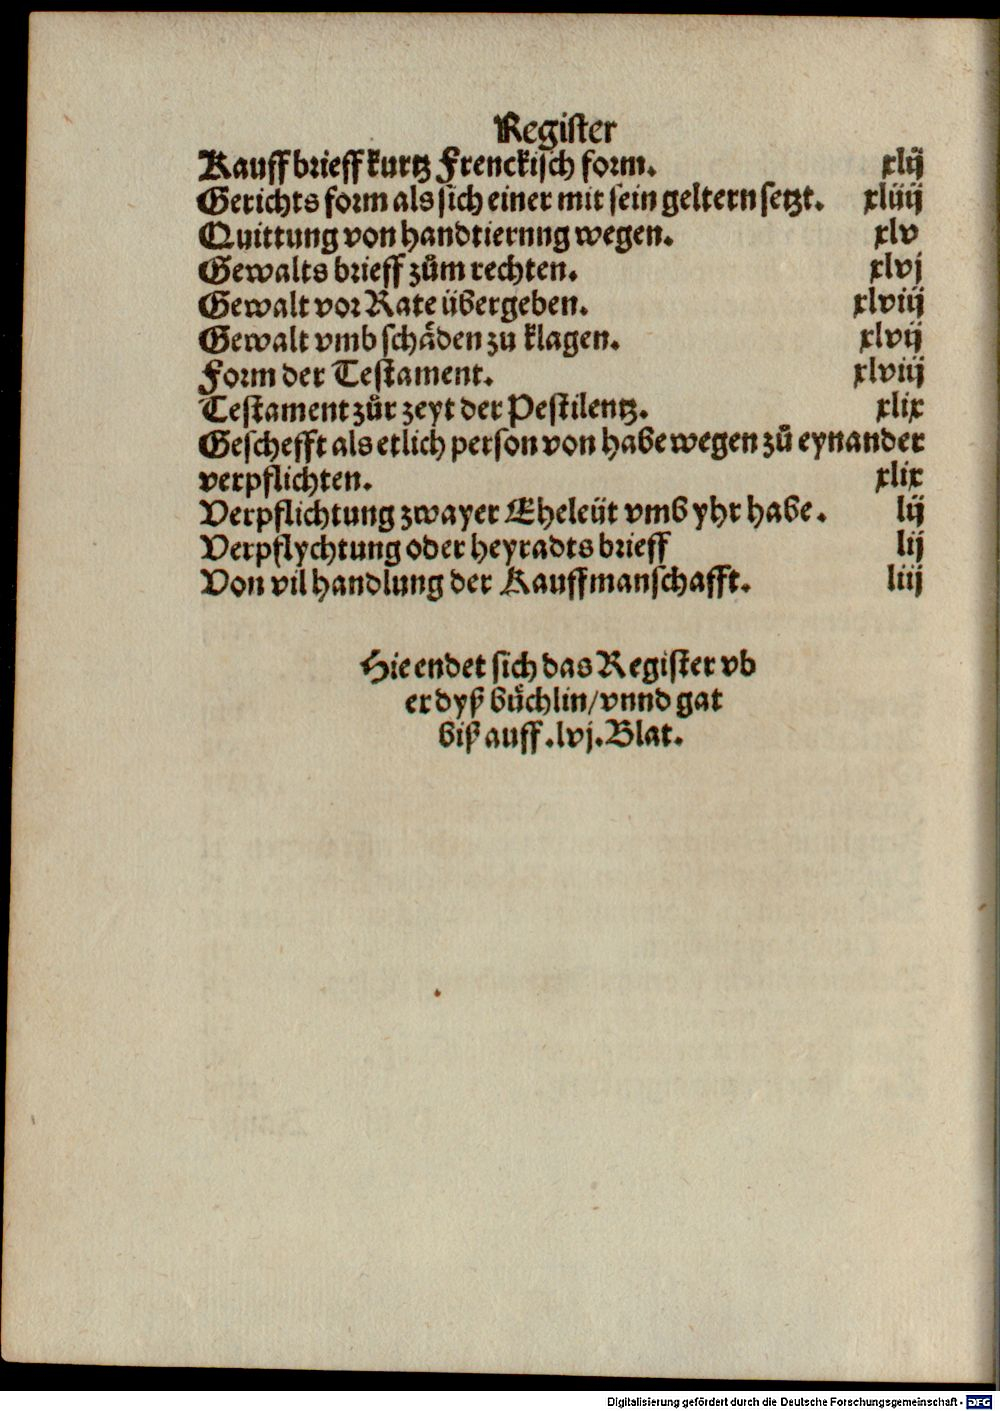 Register
Kauffbrieff kurtz Frenckisch form. xlij
Gerichts form als sich einer mit sein geltern setzt. xliiij
Quittung von handtiernng wegen. xlv
Gewalts brieff zům rechten. xlvj
Gewalt vor Rate übergeben. xlviij
Gewalt vmb schåden zu klagen. xlvij
Form der Testament. xlviij
Testament zůr zeyt der Pestilentz. xlix
Geschefft als etlich person von habe wegen zů eynander
verpflichten. xlix
Verpflichtung zwayer Eheleüt vmb yhr habe. lij
Verpflychtung oder heyradts brieff lij
Von vil handlung der Kauffmanschafft. liij
Hie endet sich das Register vb
er dyß büchlin/vnnd gat
biß auff .lvj. Blat.
Digitalisierung gefördert durch die Deutsche Forschungsgemeinschaft - DFG